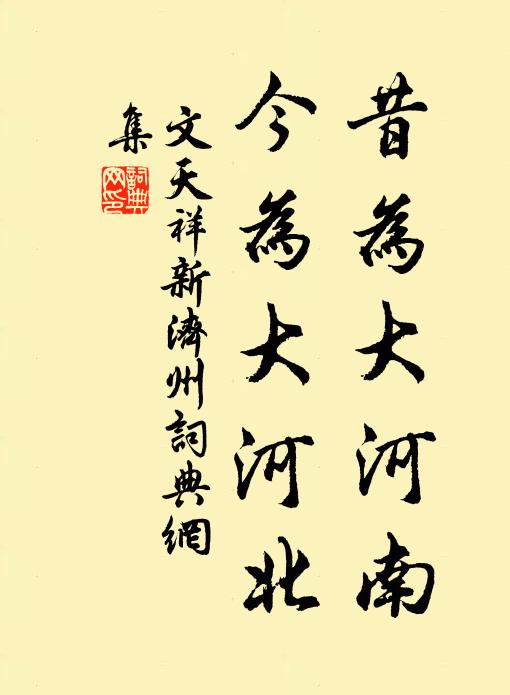 昔為大河南
今為大河北
文天祥新濟州詞典網
集
詞典
网印